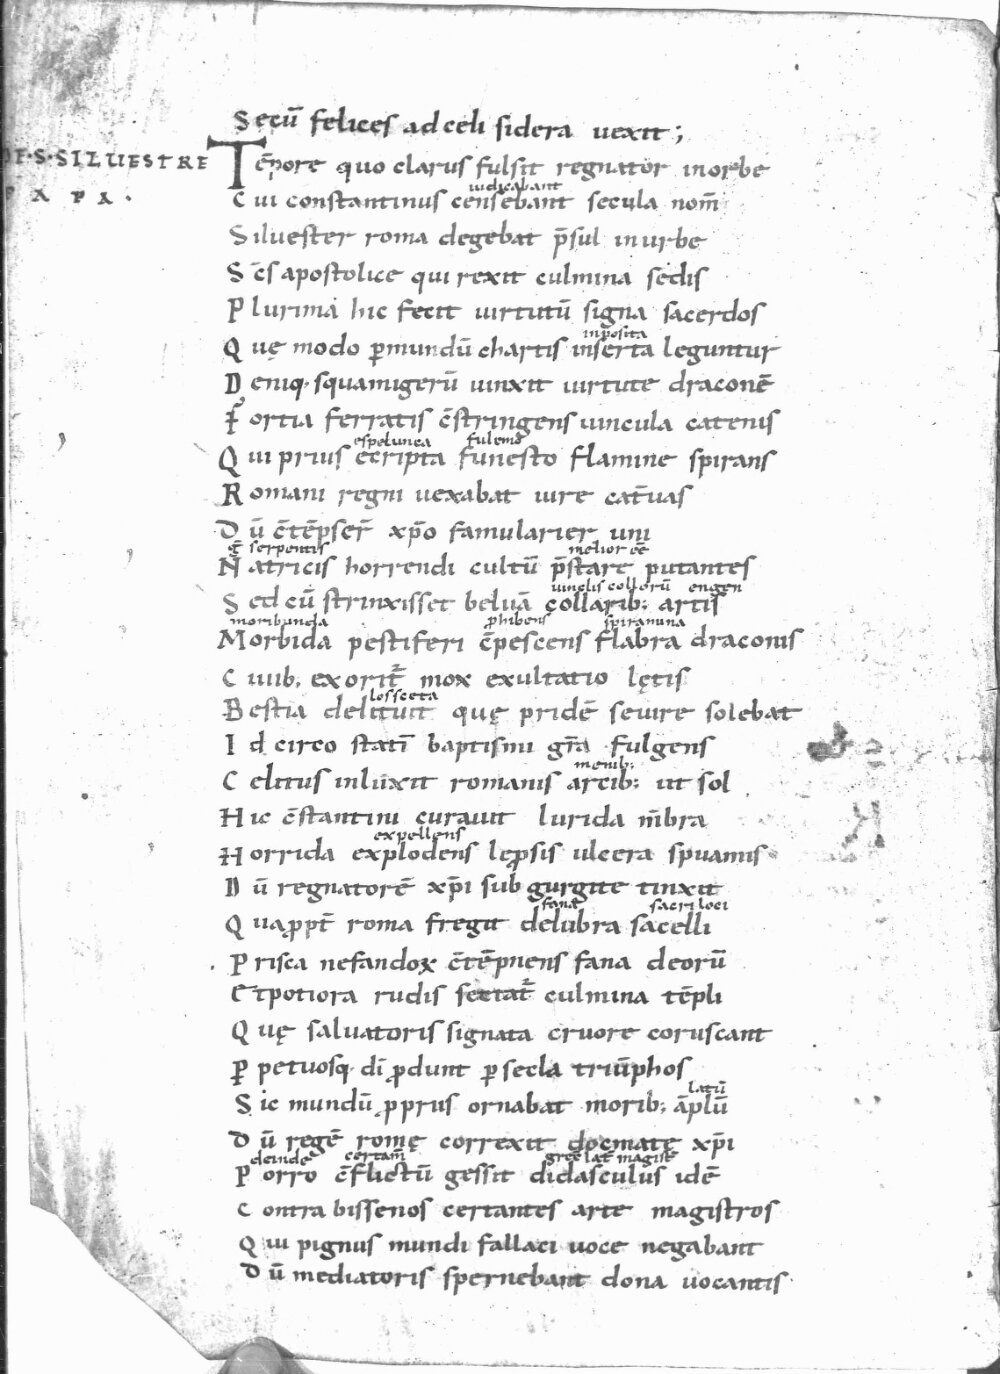 Secū felices ad celi sidera uexit;
DE·S·SILUESTRE
PAPA.
Tēpore quo clarus fulsit regnator in orbe
iudicabant
Cui constantinus censebant secula nom̄
Siluester roma degebat p̄sul in urbe
Sc̄s apostolice qui rexit culmina sedis
Plurima hic fecit uirtutū signa sacerdos
inposita
Quę modo ꝑ mundū chartis inserta leguntur
Deniq· squamigerū uinxit uirtute draconē
Fortia ferratis c̄stringens uincula catenis
espelunca
Qui prius ecripta funesto flamine spirans
Romani regni uexabat iure cat̄uas
Dū c̄tēpser̄ xp̄o famularier uni
serpentis melior eē
Natricis horrendi cultū p̄stare putantes
uinclis collorū
Sed cū strinxisset beluā collarib; artis
moribunda ꝓhibens spiramina
Morbida pestiferi c̄pescens flabra draconis
Ciuib; exorit̄ mox exultatio lętis
Bestia delituit quę pridē seuire solebat
Id circo statī baptismi gr̄a fulgens
menib;
Celitus inluxit romanis arcib; ut sol
Hic c̄stantini curauit lurida m̄bra
expellens
Horrida explodens lęprosis ulcera spuamis
Dū regnatorē xp̄i sub gurgite tinxit
fana sacri loci
Quaꝓpt̄ roma fregit delubra sacelli
Prisca nefandoꝝ c̄tēpnens fana deorū
Et potiora rudis sectat̄ culmina tēpli
Quę saluatoris signata cruore coruscant
Ꝑpetuosq· dī ꝓdunt ꝑ secla triūphos
latū
Sic mundū ꝓprus ornabat morib; āplū
Dū regē romę correxit docmate xp̄i
deinde certam̄ magist̄
Porro c̄flictū gessit didasculus idē
Contra bissenos certantes arte magistros
Qui pignus mundi fallaci uoce negabant
Dū mediatoris spernebant dona uocantis